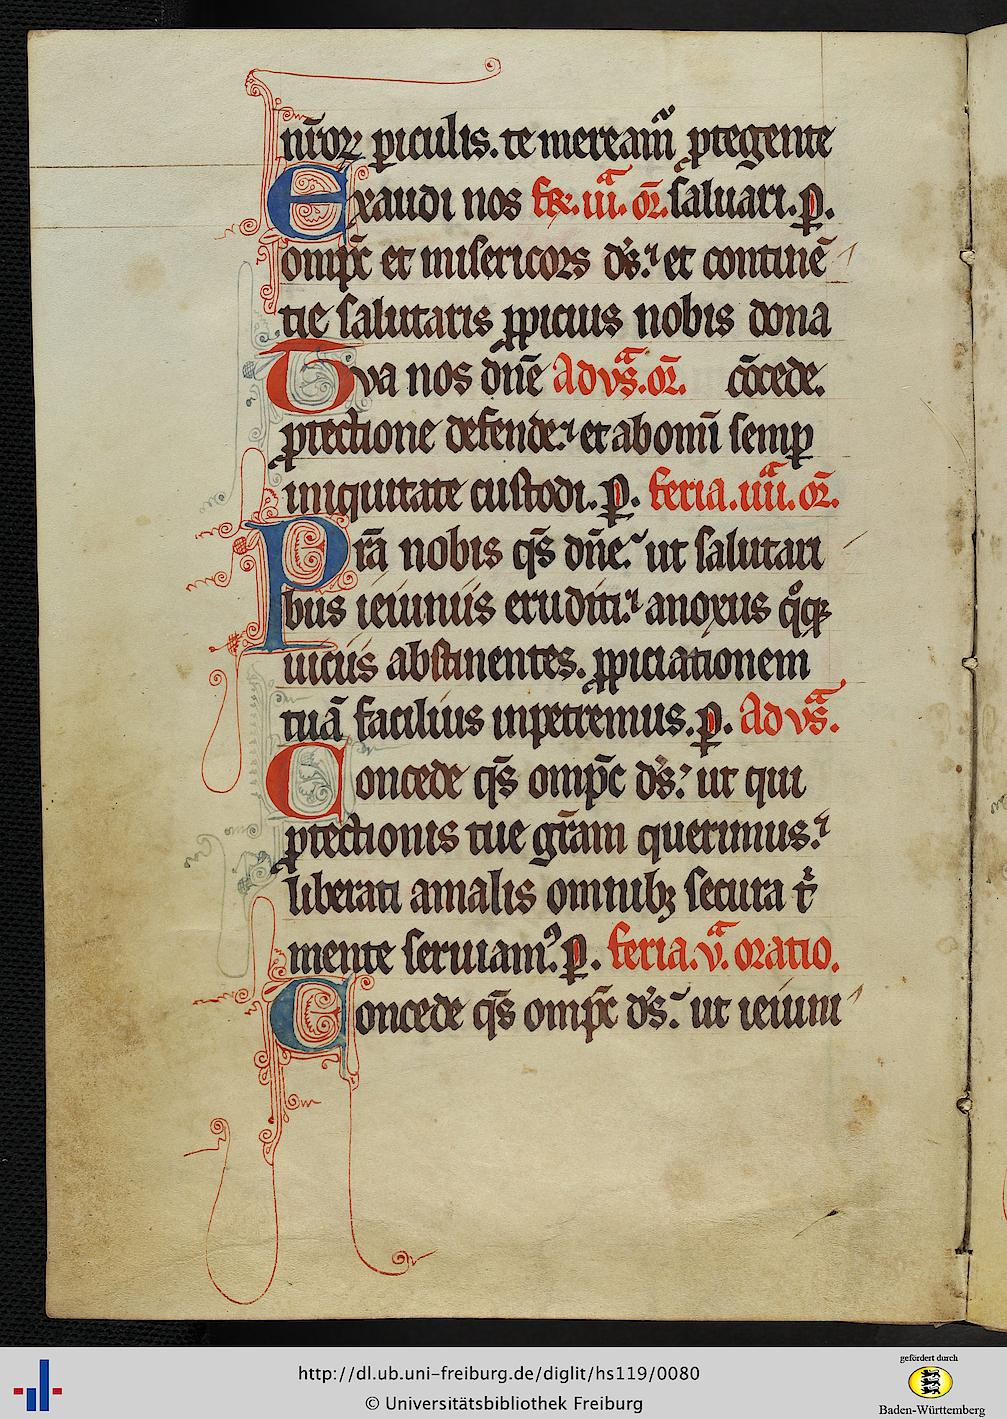 nr̄oꝝ ꝑiculis. te meream̄ ꝓtegente
Exaudi nos fer̄. iii.ª or̄. saluari. ꝑ.
omp̄c et misericors d's: et continē
tie salutaris ꝓpicius nobis dona
Tua nos dn̄e Ad vs̄.ª or̄. cōcede.
ꝓtectione defende: et ab omī semꝑ
iniquitate custodi. ꝑ. feria. iiii.ª or̄.
Pr̄a nobis qs̄ dn̄e: ut salutari
bus ieiuniis eruditi: a noxiis qͦqꝫ
uiciis abstinentes. ꝓpiciationem
tuā facilius inpetremus. ꝑ. Ad vs̄.ª
Concede qs̄ omp̄c d's: ut qui
ꝓtectionis tue gr̄am querimus:
liberati a malis omnibꝫ secura t̄
mente seruiamꝰ. ꝑ. feria. v.ª oratio.
Concede qs̄ omp̄c d's: ut ieiuni
http://dl.ub.uni-freiburg.de/diglit/hs119/0080
© Universitätsbibliothek Freiburg
gefördert durch
Baden-Württemberg